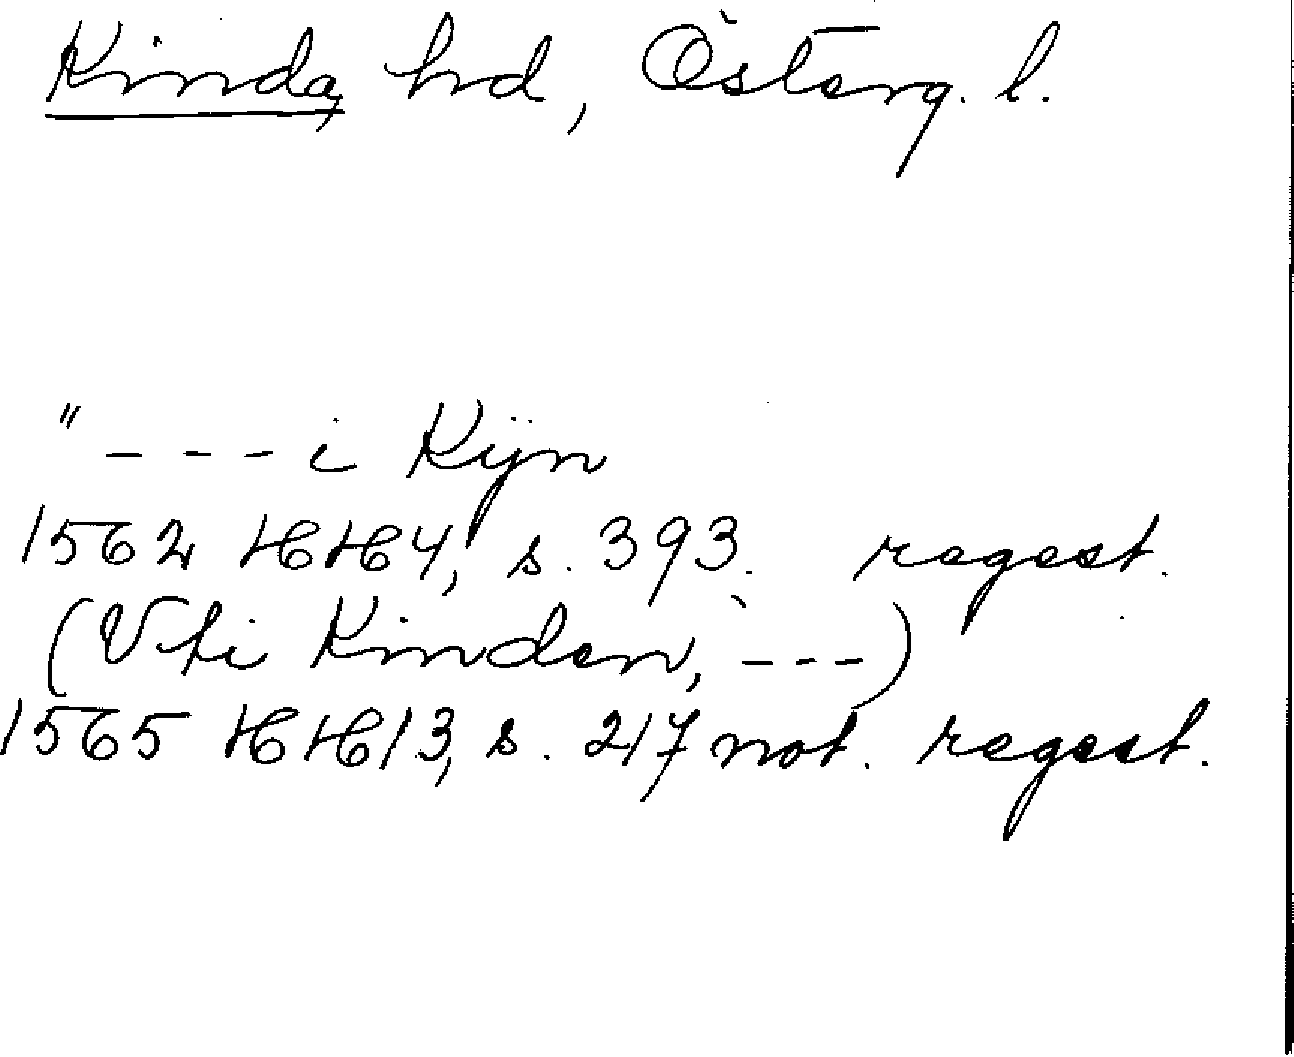 Kinda, hd, Österg. l.
" - - - i Kÿn
1562 HH4, s. 393. regest.
(Vti Kinden, - - -)
1565 HH13, s. 217 not. regest.